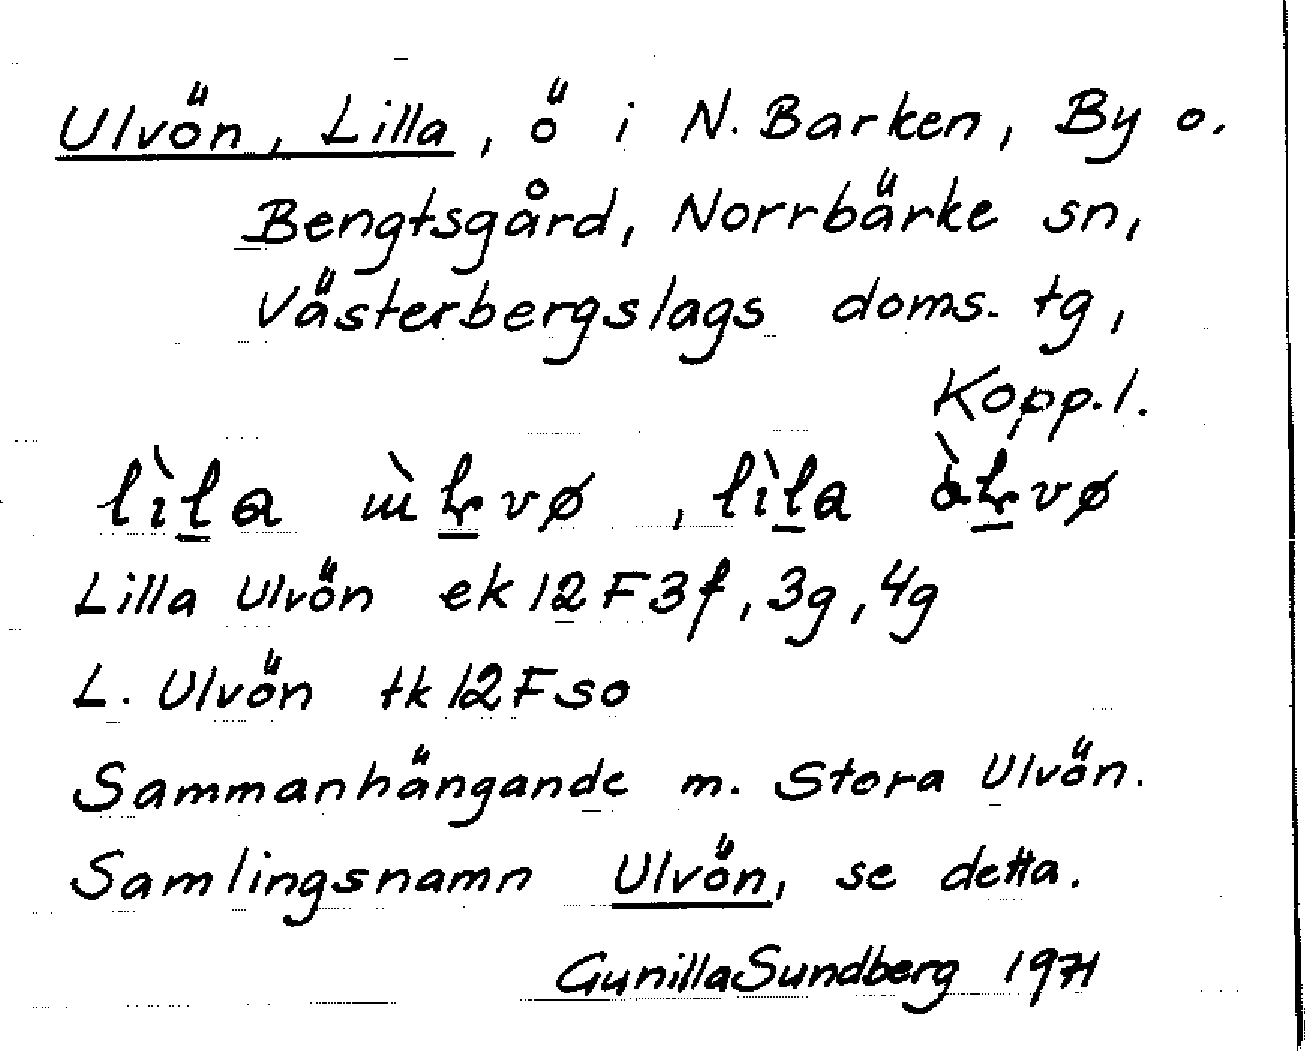 Ulvön, Lilla, ö i N. Barken, By o.
Bengtsgård, Norrbärke sn,
Västerbergslags doms. tg,
Kopp. l.
lìla vø, lìla vø
Lilla Ulvön ek 12 F 3f, 3g, 4g
L. Ulvön tk 12 F so
Sammanhängande m. Stora Ulvön.
Samlingsnamn Ulvön, se detta.
Gunilla Sundberg 1971